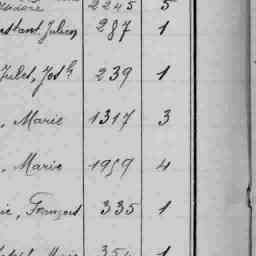 2245 5
Julien 287 1
Jules, Jos h 239 1
, Marie 1317 3
, Marie 1959 4
ie, François 335 1
354 1